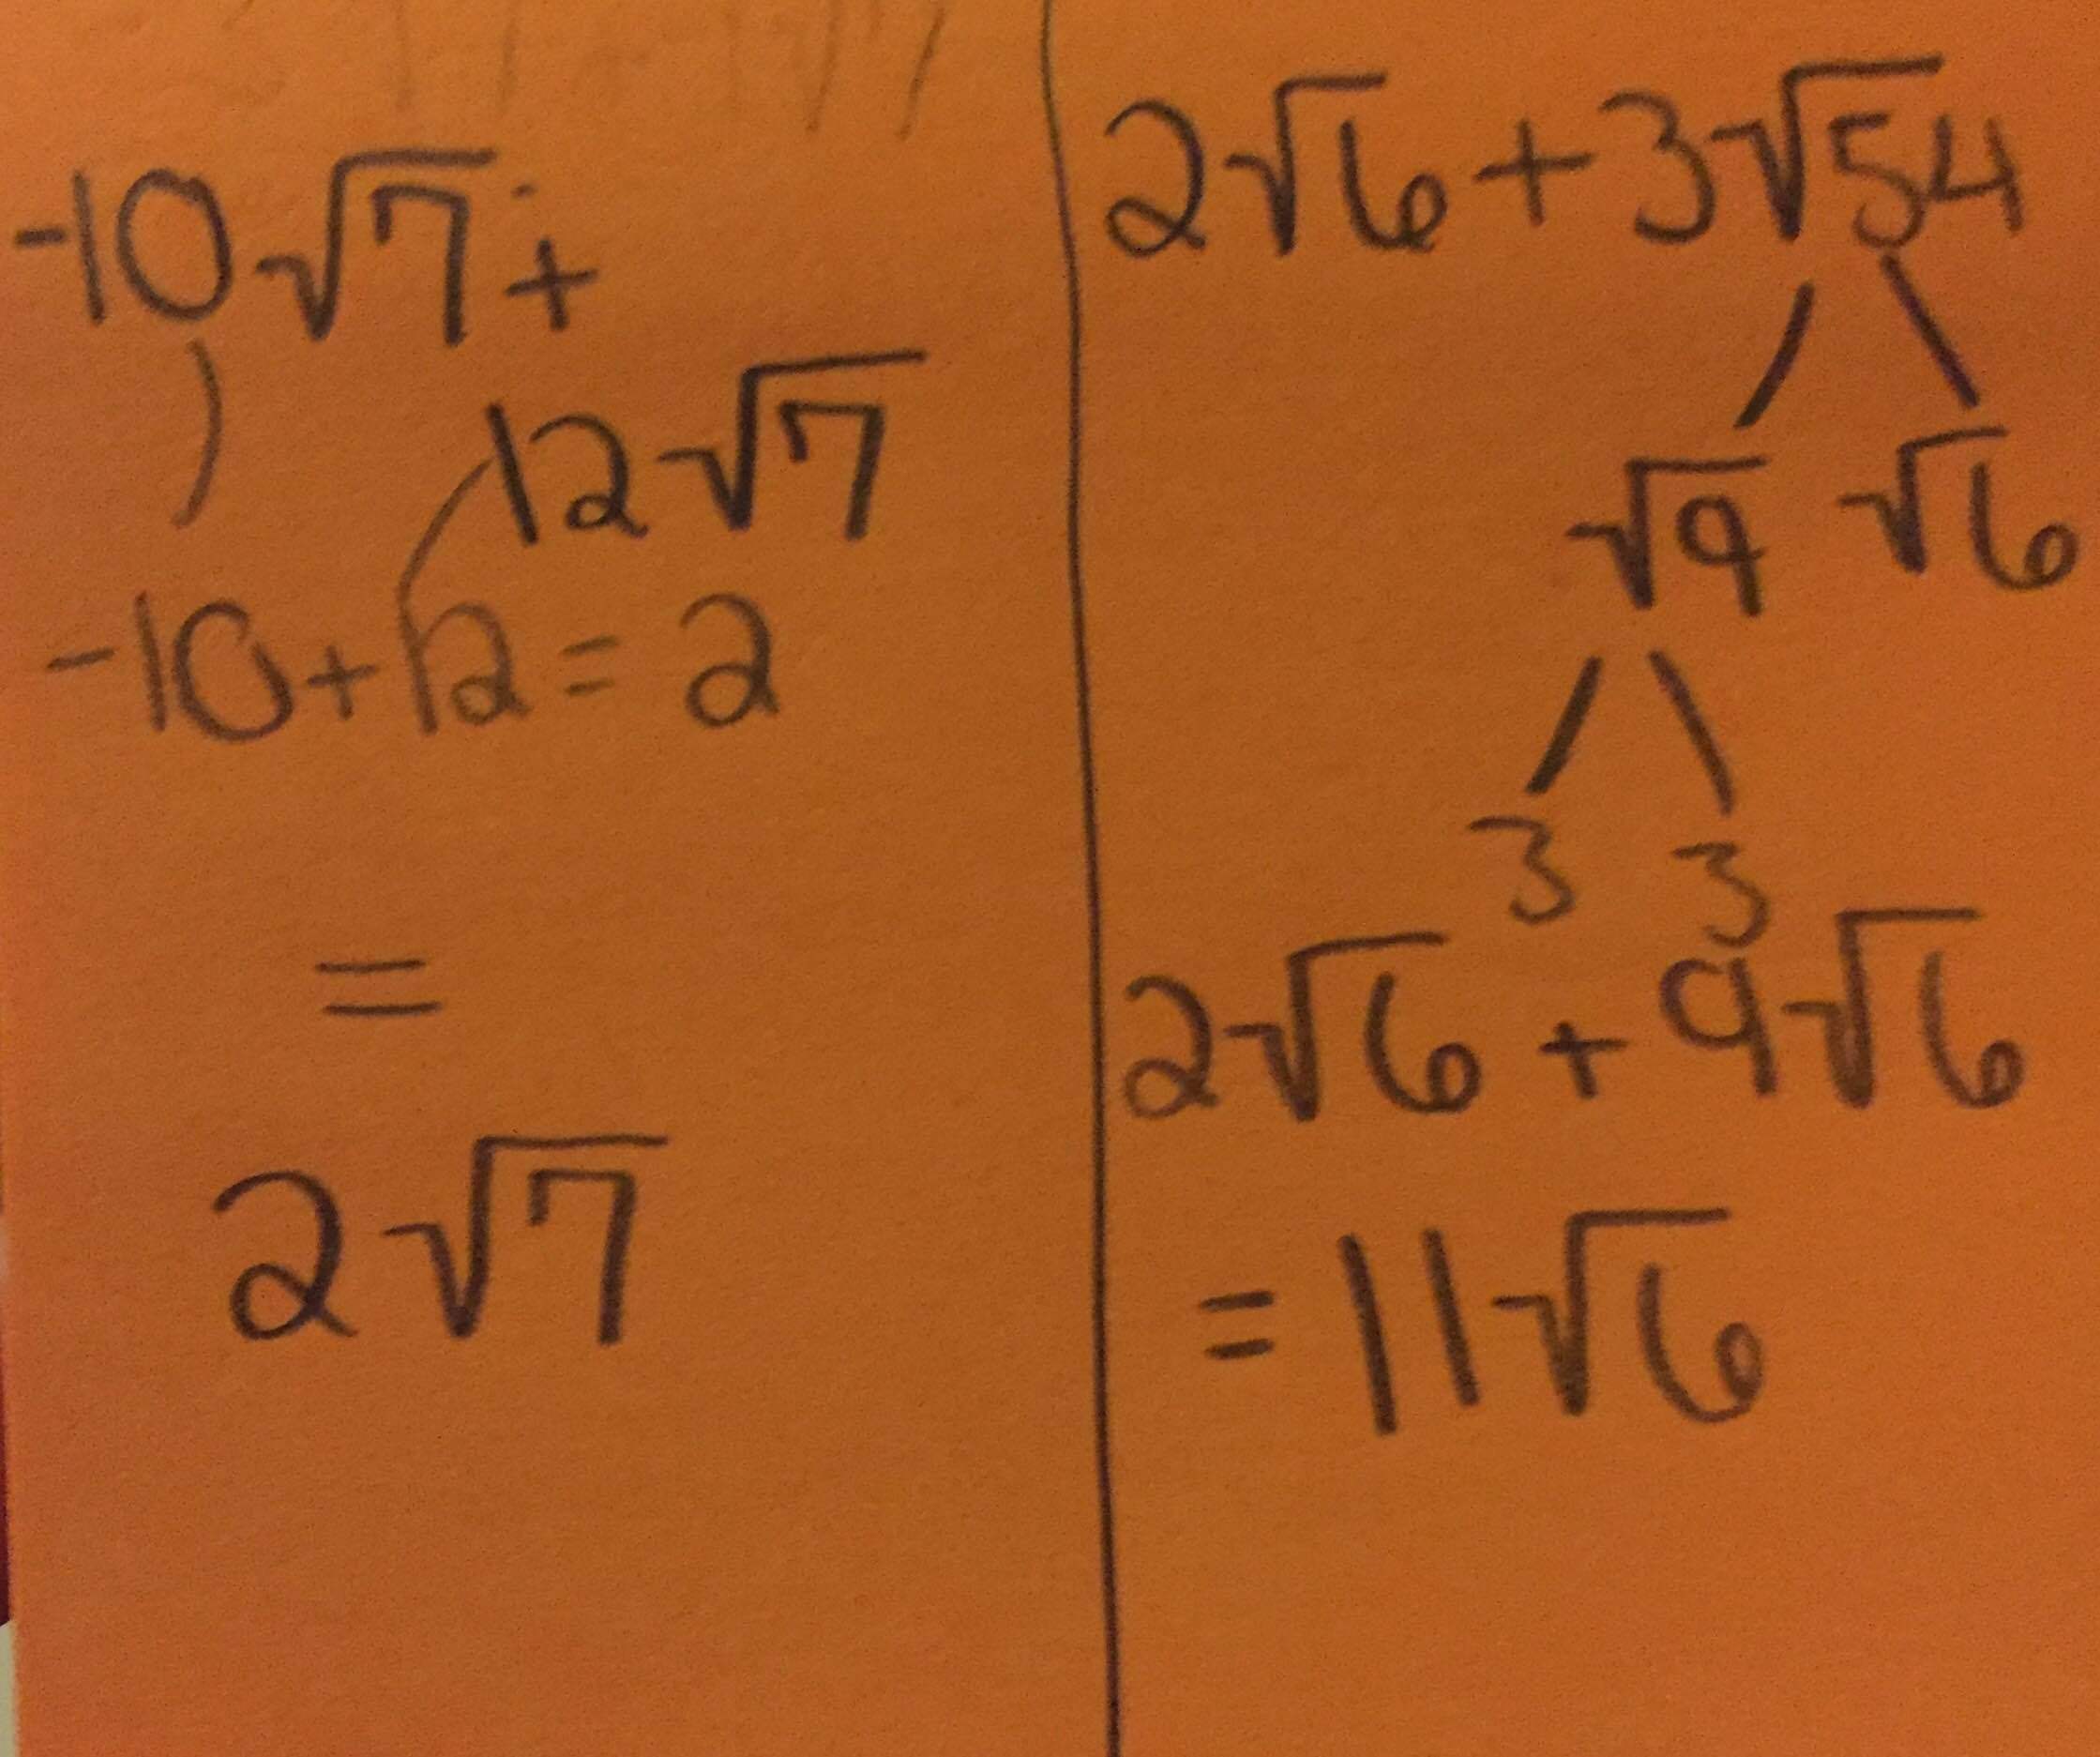 -10√7 +
12√7
-10+12 = 2
=
2√7
2√6 + 3√54
√9 √6
3 3
2√6 + 9√6
= 11√6